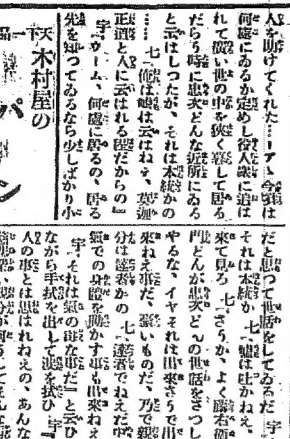 人を助けてくれた…ーアヽ今頃は
何處にゐるか定めし役人衆に追は
れて廣い世の中を狹く暮して居る
だらう時に忠次どんな近所にゐる
と云はしつたが、それは本統かの
……　七『俺は嘘は云はねえ、莫迦
正直と人に云はれる程だからの』
宇『ウーム、何處に居るの、居る
先を知つてゐるなら少しばかり小
天下一品
木村屋の
パン
だと思つて世話をしてゐるだ　宇『
それは本統か　七『嘘は吐かねえ、
來て見ろ　七『さうか、よく藤右衛
門どんが忠次どのゝ世話をさつし
やるな、イヤそれは出來さうで出
來ねえ事だ、強いものだ、乃で親
分は達者かの　七『達者でねえだ中
氣での身體を動かす事も出來ねえ
宇『それは氣の毒な事だ』と云ひ
ながら手拭を出して涙を拭ひ　宇『
人の事とは思はれねえの、あんな